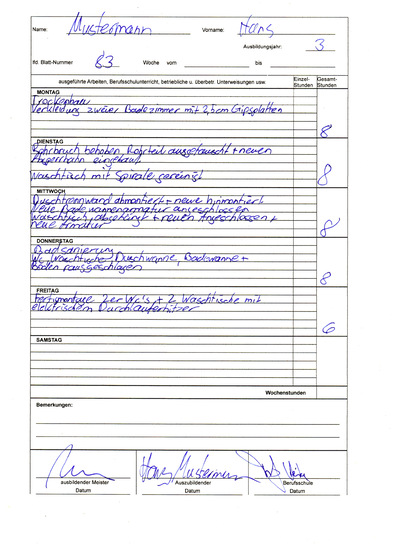 Name: Mustermann Vorname: Hans
Ausbildungsjahr: 3
lfd. Blatt-Nummer 83 Woche vom bis
ausgeführte Arbeiten, Berufsschulunterricht, betriebliche u. überbetr. Unterweisungen usw. Einzel-Stunden Gesamt-Stunden
MONTAG
Trockenbau
Verkleidung zweier Badezimmer mit 2,5cm Gipsplatten
8
DIENSTAG
Rohrbruch behoben, Rohrteil ausgetauscht + neuen
eingebaut
Waschtisch mit Spirale gereinigt
8
MITTWOCH
Duschtrennwand abmontiert + neue hinmontiert
Neue Badewannenarmatur angeschlossen
Waschtisch + neuen Angeschlossen +
neue Armatur
8
DONNERSTAG
Badsanierung
Wc, Waschtisch, Duschwanne, Badewanne +
Boden rausgeschlagen
8
FREITAG
Fertigmontage 2er Wc's + 2 Waschtische mit
elektrischem Durchlauferhitzer
6
SAMSTAG
Wochenstunden
Bemerkungen:
Hans Mustermann
ausbildender Meister Auszubildender Berufsschule
Datum Datum Datum